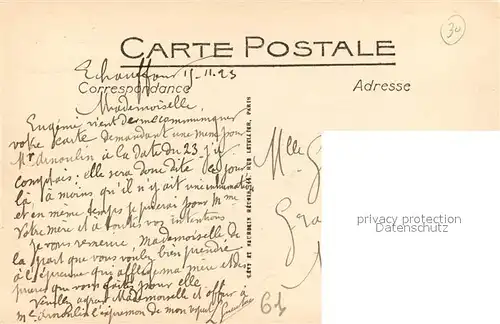 CARTE POSTALE
Echauffour 15-11-23
Correspondance
Adresse
Mademoiselle,
Eugénie vient de me communiquer
votre carte demandant une messe pour
Mr à la date du 23. J'y
comptais; elle sera donc dite ce jour
là, à moins qu'il n'y ait une inhumation
et en même temps je prierai pour Mme
Votre mère et à toutes vos intentions.
Je vous remercie, Mademoiselle de
la part que vous voulez bien prendre
à l'épreuve qui afflige ma mère et des
prières que vous faites pour elle
Veuillez agréer Mademoiselle et offrir à
l'expression de mon respect
LEVY ET NEURDEIN RÉUNIS, 44, RUE LETELLIER, PARIS
Mlle
privacy protection
61
30